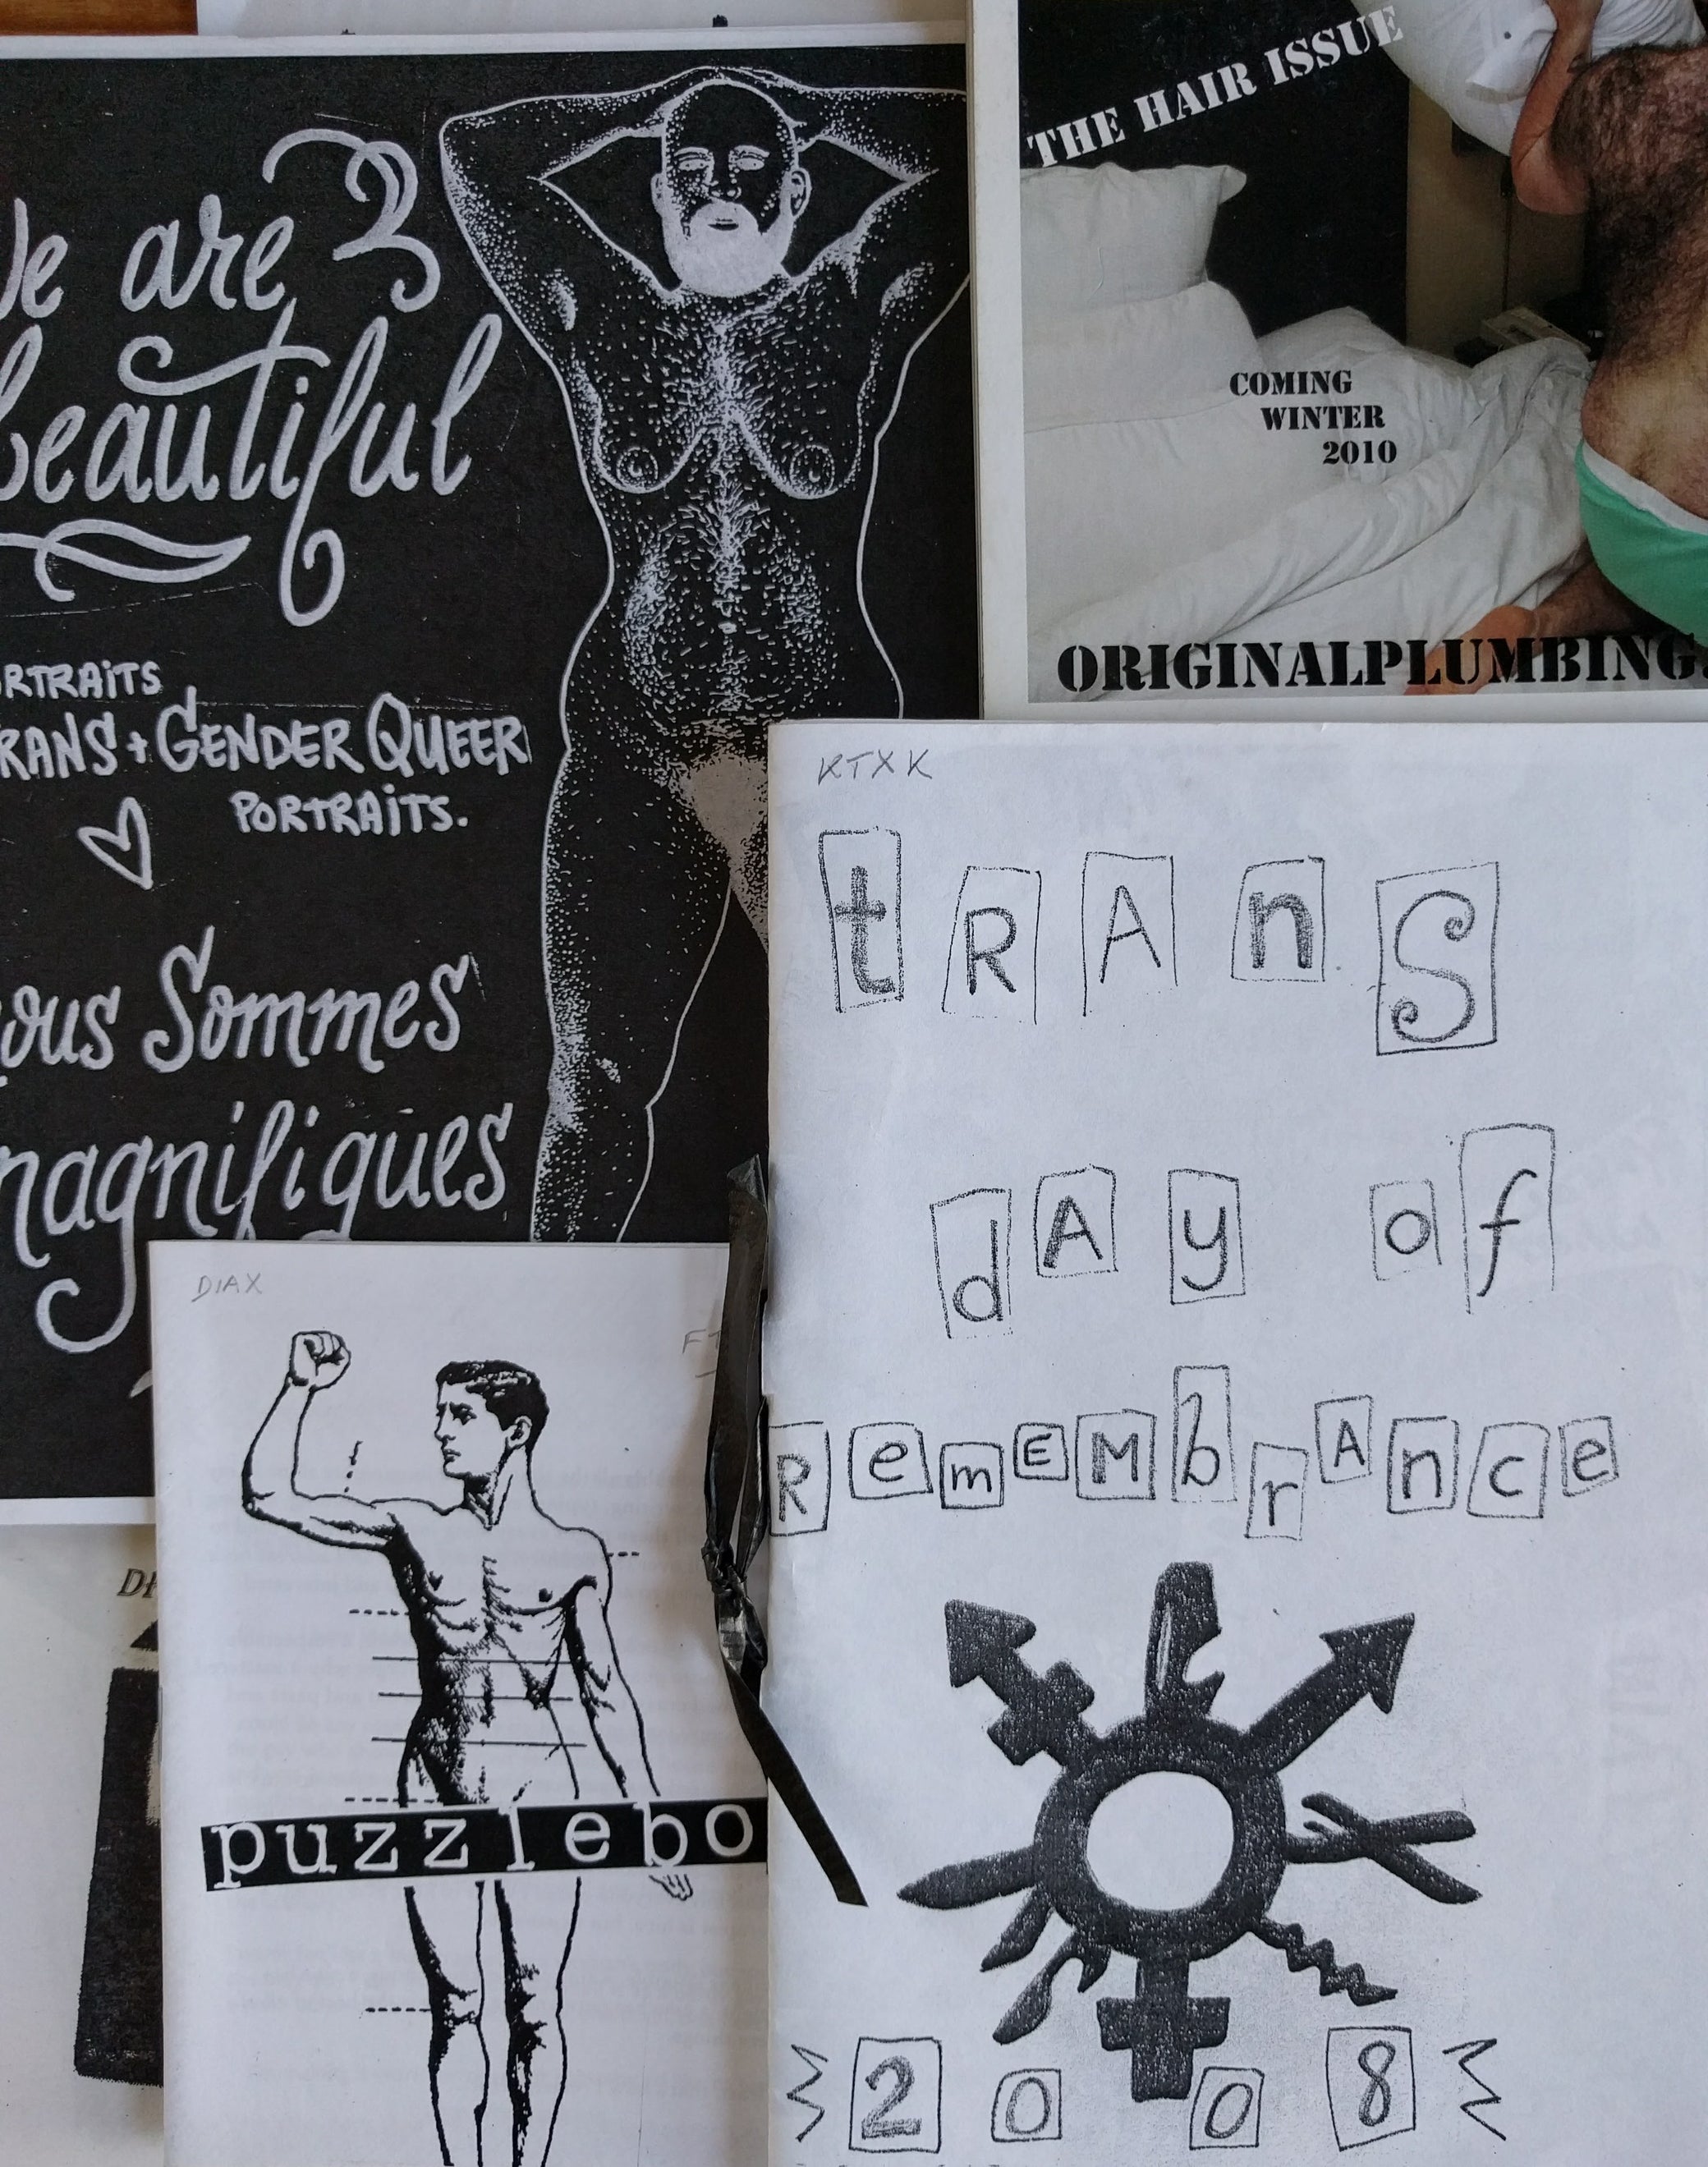 We are 3
beautiful
PORTRAITS
TRANS + GENDER QUEER
PORTRAITS.
nous Sommes
magnifiques
THE HAIR ISSUE
COMING
WINTER
2010
ORIGINALPLUMBING
KTXK
tRAnS
dAy of
RemEMbrAnce
2008
DIAX
FT
puzzlebo